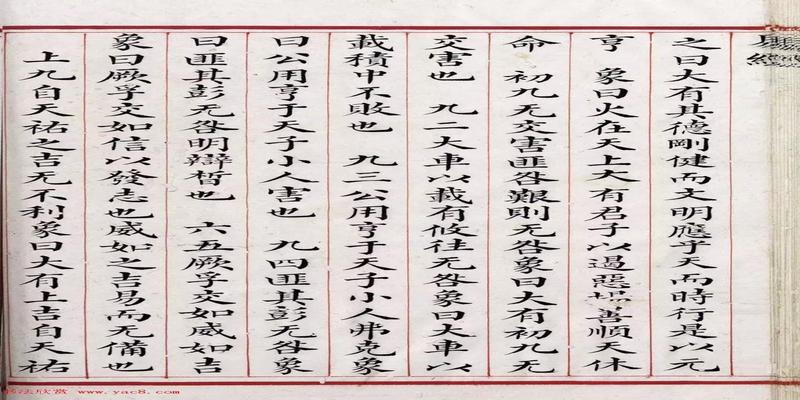 之曰大有其德剛健而文明應乎天而時行是以元
亨 象曰火在天上大有君子以遏惡揚善順天休
命 初九无交害匪咎艱則无咎象曰大有初九无
交害也 九二大車以載有攸往无咎象曰大車以
載積中不敗也 九三公用亨于天子小人弗克象
曰公用亨于天子小人害也 九四匪其彭无咎象
曰匪其彭无咎明辯晢也 六五厥孚交如威如吉
象曰厥孚交如信以發志也威如之吉易而无備也
上九自天祐之吉无不利象曰大有上吉自天祐
书法欣赏 www.yac8.com